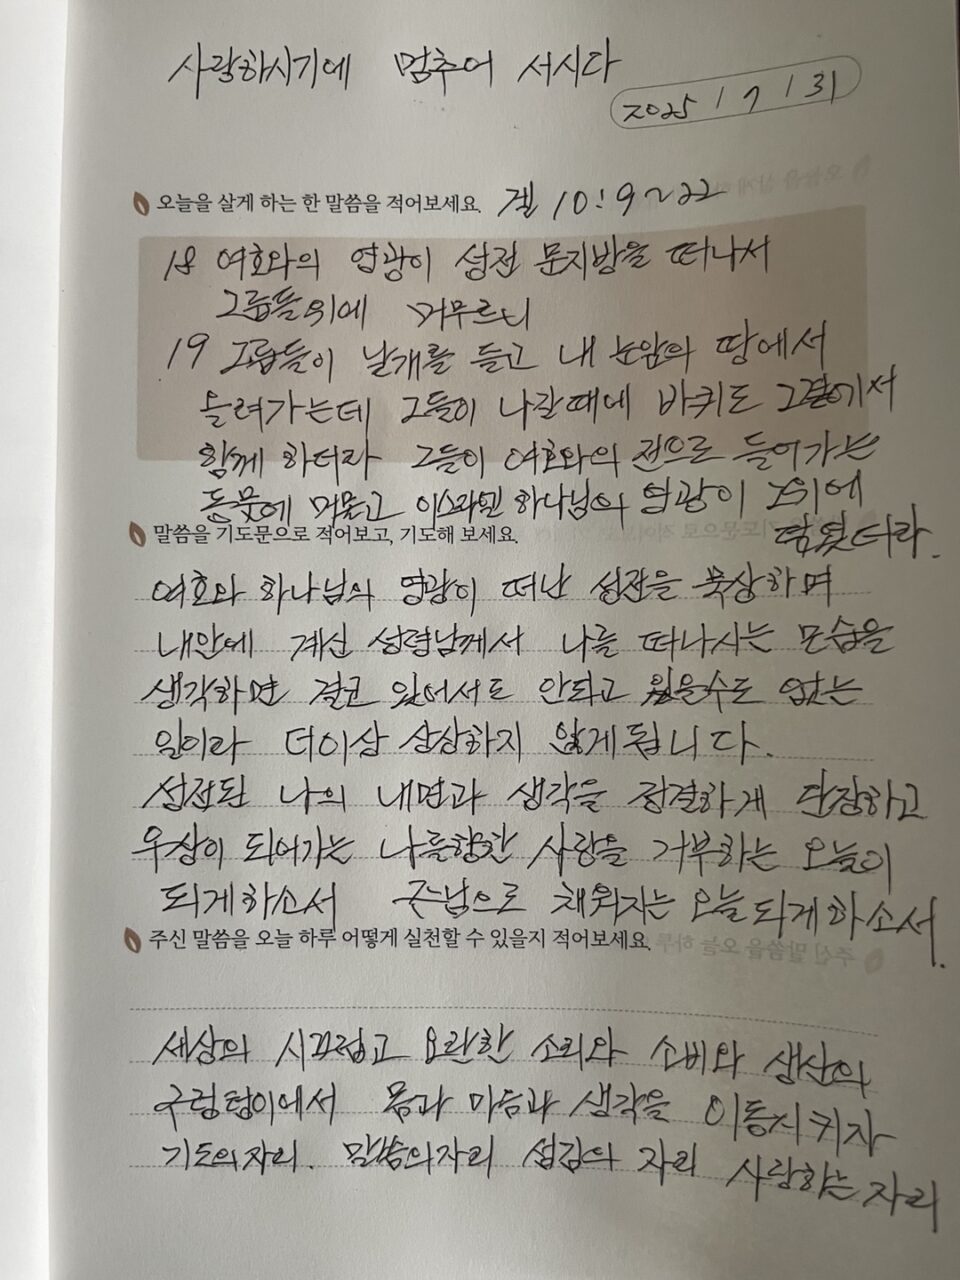 사랑하시기에 멈추어 서시다
2025 / 7 / 31
오늘을 살게 하는 한 말씀을 적어보세요. 겔 10:9~22
18 여호와의 영광이 성전 문지방을 떠나서
그룹들위에 머무르니
19 그룹들이 날개를 들고 내 눈앞의 땅에서
올려가는데 그들이 나갈때에 바퀴도 그곁에서
함께 하더라 그들이 여호와의 전으로 들어가는
동문에 머물고 이스라엘 하나님의 영광이 그위에
덮였더라.
말씀을 기도문으로 적어보고, 기도해 보세요.
여호와 하나님의 영광이 떠난 성전을 묵상하며
내안에 계신 성령님께서 나를 떠나시는 모습을
생각하면 결코 있어서도 안되고 있을수도 없는
일이라 더이상 상상하지 않게됩니다.
성전된 나의 내면과 생각을 정결하게 단장하고
우상이 되어가는 나를향한 사랑을 거부하는 오늘이
되게하소서 주님으로 채워지는 오늘되게하소서.
주신 말씀을 오늘 하루 어떻게 실천할 수 있을지 적어보세요.
세상의 시끄럽고 요란한 소리와 소비와 생산의
구렁텅이에서 몸과 마음과 생각을 이동시키자
기도의자리. 말씀의자리 섬김의 자리 사랑하는 자리